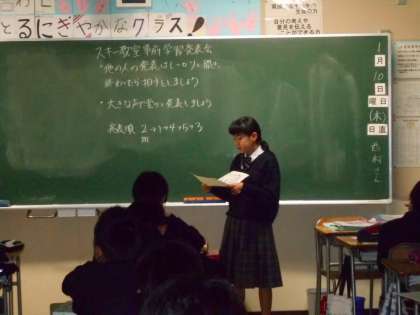 とるにぎやかなクラス!
自分の考えを
意見を伝える
ことができる力
スキー教室事前学習発表会
・他の人の発表はしっかり聴き、
終わったら拍手をしましょう
・大きな声で堂々と発表しましょう
発表順 2→1→4→5→3
1月10日曜日(木)日直